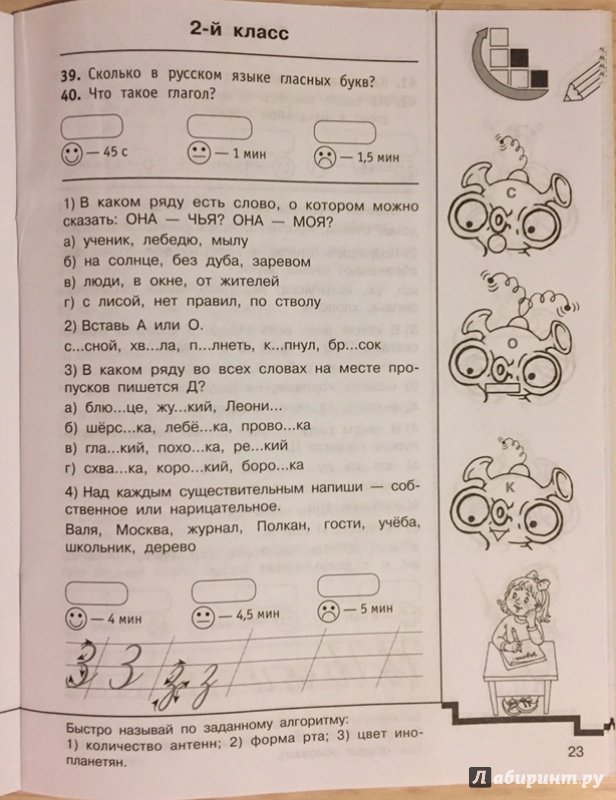 2-й класс
39. Сколько в русском языке гласных букв?
40. Что такое глагол?
— 45 с
— 1 мин
— 1,5 мин
1) В каком ряду есть слово, о котором можно
сказать: ОНА — ЧЬЯ? ОНА — МОЯ?
а) ученик, лебедю, мылу
б) на солнце, без дуба, заревом
в) люди, в окне, от жителей
г) с лисой, нет правил, по стволу
2) Вставь А или О.
с...сной, хв...ла, п...лнеть, к...пнул, бр...сок
3) В каком ряду во всех словах на месте про-
пусков пишется Д?
а) блю...це, жу...кий, Леони...
б) шёрс...ка, лебё...ка, прово...ка
в) гла...кий, похо...ка, ре...кий
г) схва...ка, коро...кий, боро...ка
4) Над каждым существительным напиши — соб-
ственное или нарицательное.
Валя, Москва, журнал, Полкан, гости, учёба,
школьник, дерево
— 4 мин
— 4,5 мин
— 5 мин
З З з з
Быстро называй по заданному алгоритму:
1) количество антенн; 2) форма рта; 3) цвет ино-
планетян.
С
О
К
23
Лабиринт.ру